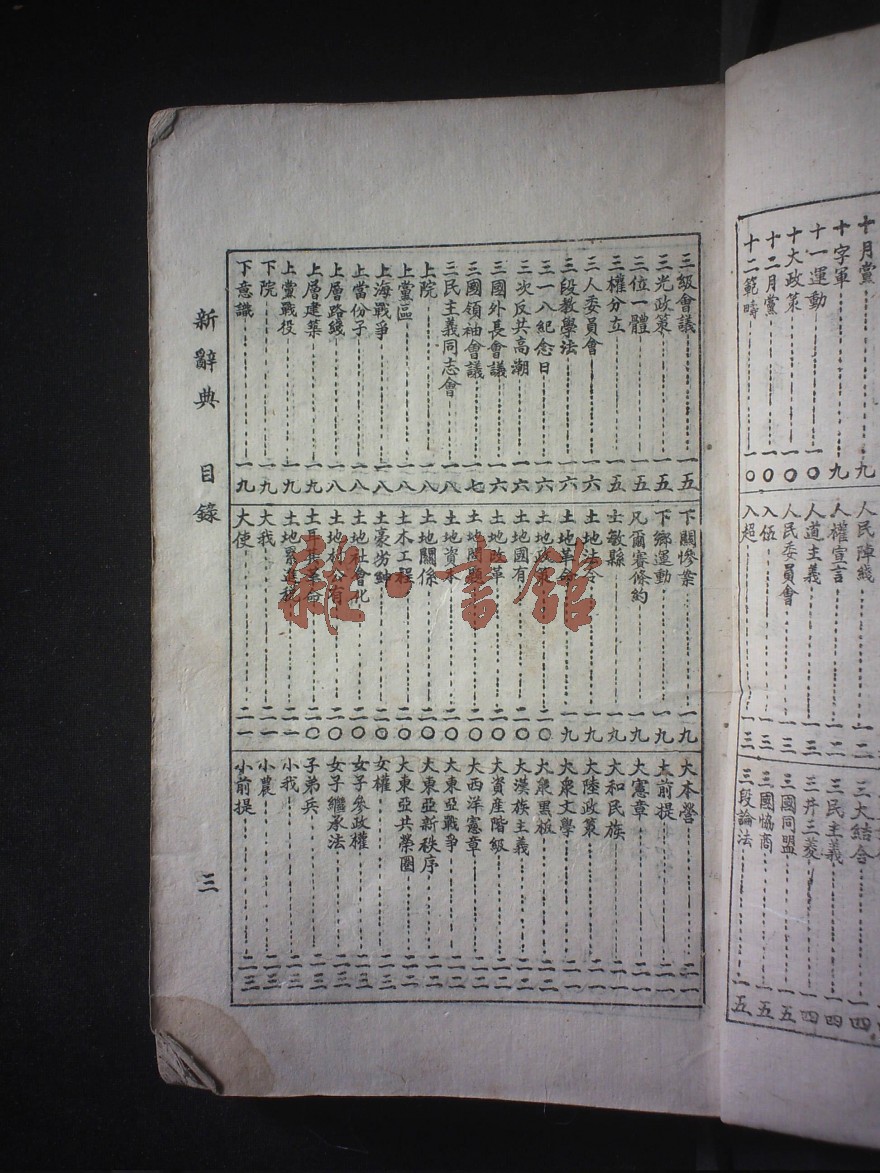 十月黨 九
十字軍 九
十一運動 一〇
十大政策 一〇
十二月黨 一〇
十二範疇 一〇
人民陣綫 一二
人權宣言 一二
人道主義 一三
人民委員會 一三
入伍 一三
入超 一三
三大結合 一四
三民主義 一四
三井三菱 一四
三國同盟 一五
三國協商 一五
三段論法 一五
三級會議 一五
三光政策 一五
三位一體 一五
三權分立 一五
三人委員會 一六
三段教學法 一六
三一八紀念日 一六
三次反共高潮 一六
三國外長會議 一六
三國領袖會議 一七
三民主義同志會 一八
上院 一八
上黨區 一八
上海戰爭 一八
上當份子 一八
上層路綫 一八
上層建築 一九
上黨戰役 一九
下院 一九
下意識 一九
下關慘案 一九
下鄉運動 一九
凡爾賽條約 一九
士敏縣 一九
土地法令 一九
土地革命 一九
土地政策 二〇
土地國有 二〇
土地改革 二〇
土地問題 二〇
土地資本 二〇
土地關係 二〇
土木工程 二〇
土豪劣紳 二〇
土地社會化 二〇
土地村公有 二〇
土耳其革命 二〇
土地累進稅 二一
大我 二一
大使 二一
大本營 二一
大前提 二一
大憲章 二一
大和民族 二一
大陸政策 二一
大衆文學 二一
大衆黑板 二二
大漢族主義 二二
大資產階級 二二
大西洋憲章 二二
大東亞戰爭 二二
大東亞新秩序 二二
大東亞共榮圈 二二
女權 二三
女子參政權 二三
女子繼承法 二三
子弟兵 二三
小我 二三
小農 二三
小前提 二三
新辭典 目錄 三
雜·書館